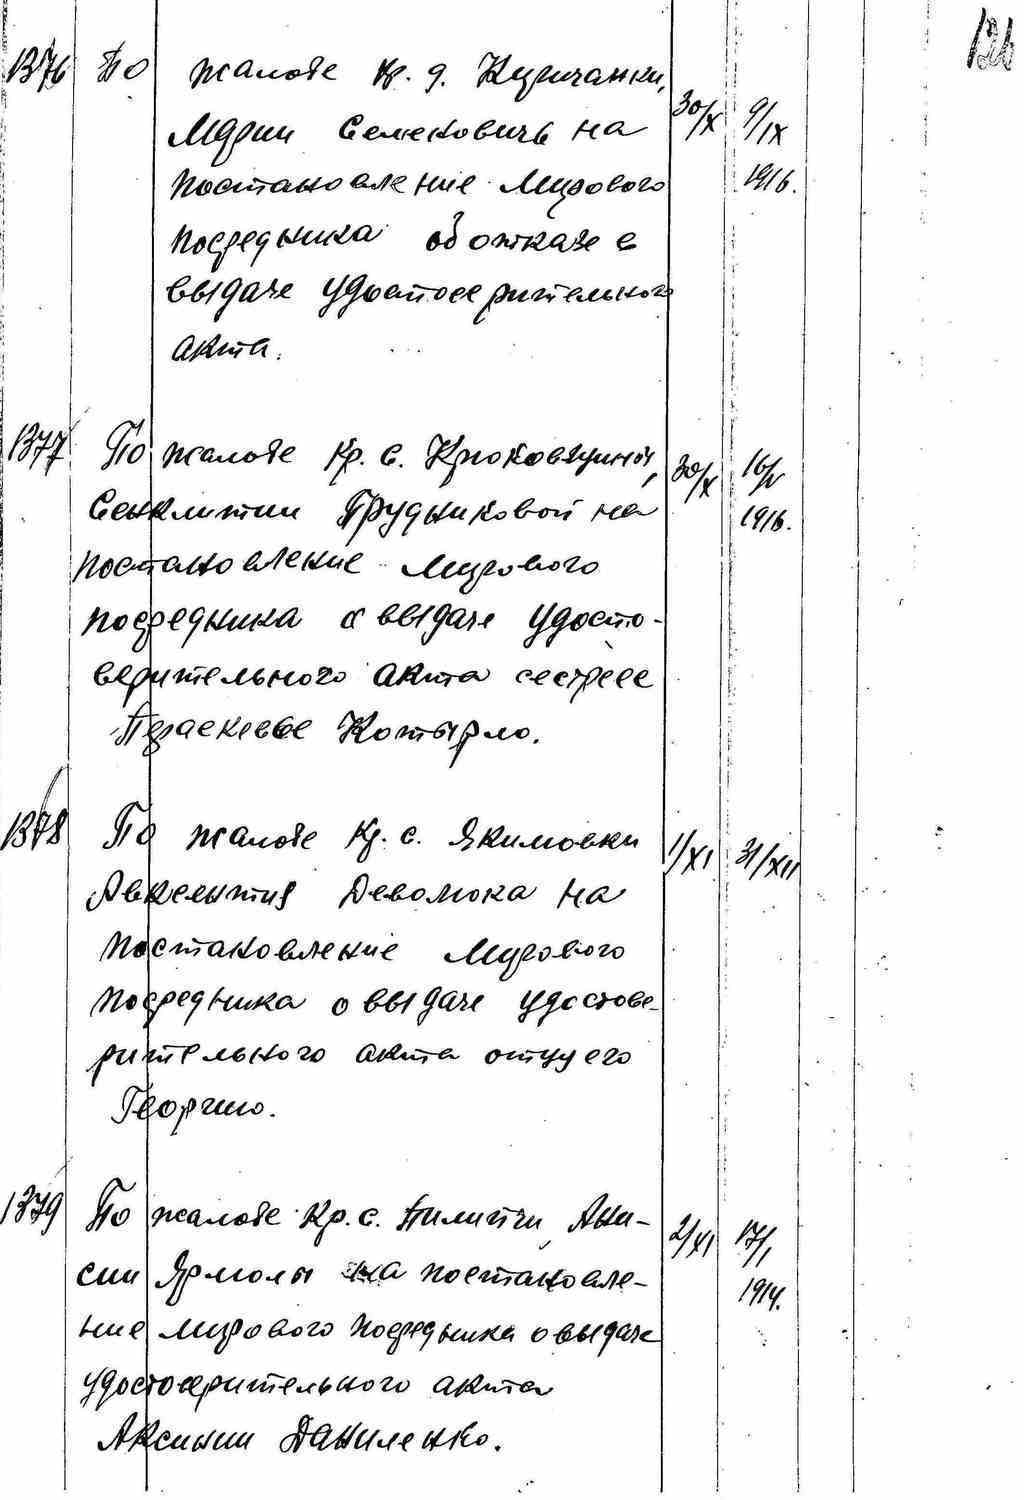 126
1376 По жалобе кр. д. Куричанки,
Марии Селековичь на 30/X 9/IX
постановление Мирового 1916.
посредника об отказе в
выдаче удостоверительного
акта.
1377 По жалобе Кр. с. Крюковщины,
Сенклитии Прудниковой на 30/X 16/V
постановление Мирового 1916.
посредника о выдаче удосто-
верительного акта сестре ее
Параскеве Котырло.
1378 По жалобе Кр. с. Якимовки 1/XI 31/XII
Авксентия Деволюка на
постановление Мирового
посредника о выдаче удостове-
рительного акта отцу его
Георгию.
1379 По жалобе Кр. с. Пилипчи, Ани-
сии Ярмолы на постановле- 2/XI 17/I
ние мирового посредника о выдаче 1914.
удостоверительного акта
Аксинии Даниленко.